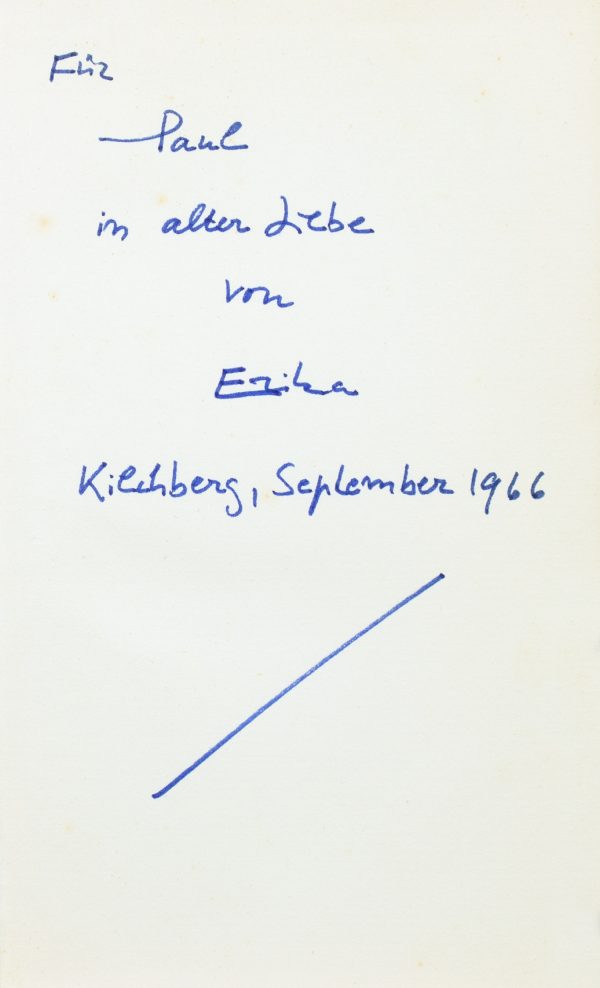 Für
Paul
in alter Liebe
von
Erika
Kilchberg, September 1966